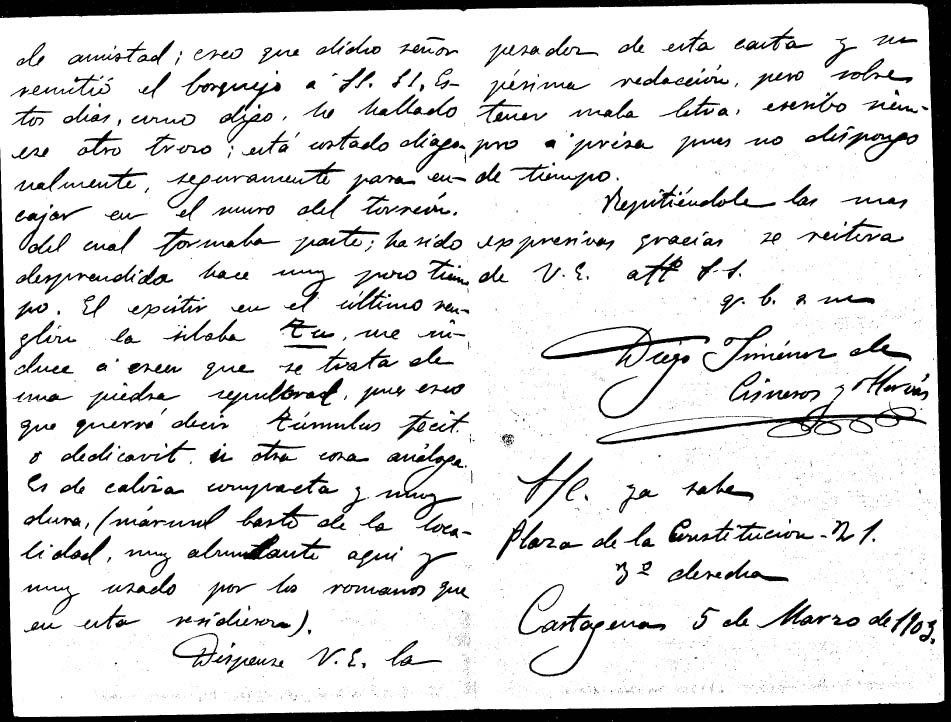 de amistad; creo que dicho señor
remitió el bosquejo a SS. SS. Es-
tos dias, como digo, he hallado
ese otro trozo; está cortado diago-
nalmente, seguramente para en-
cajar en el muro del torreón
del cual formaba parte; ha sido
desprendida hace muy poco tiem-
po. El existir en el último ren-
glón la sílaba tu, me in-
duce á creer que se trata de
una piedra sepulcral, pues creo
que querrá decir túmulus fecit
o dedicavit u otra cosa análoga.
Es de caliza compacta y muy
dura, (mármol basto de la loca-
lidad, muy abundante aqui y
muy usado por los romanos que
en esta residieron).
Dispense V.E. la
pesadez de esta carta y su
pésima redacción, pero sobre
tener mala letra, escribo siem-
pre á prisa pues no dispongo
de tiempo.
Repitiéndole las mas
expresivas gracias se reitera
de V.E. affº S.S.
q. b. s m
Diego Jiménez de
Cisneros y Hervás
S/C. ya sabe
Plaza de la Constitucion - nº 1.
3º derecha
Cartagena 5 de Marzo de 1903.